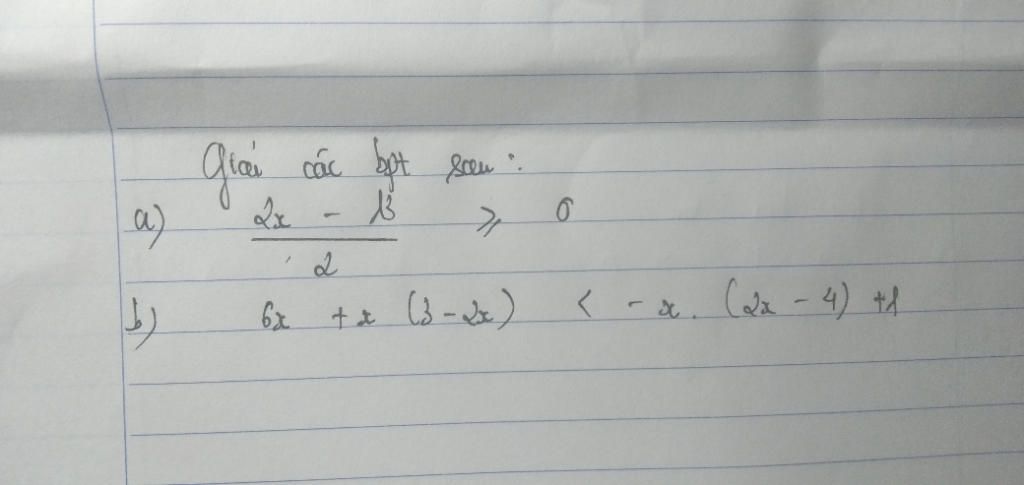 Giải các bpt sau :
a) \frac{2x - 13}{2} ⩾ 0
b) 6x + x (3 - 2x) < - x . (2x - 4) + 1